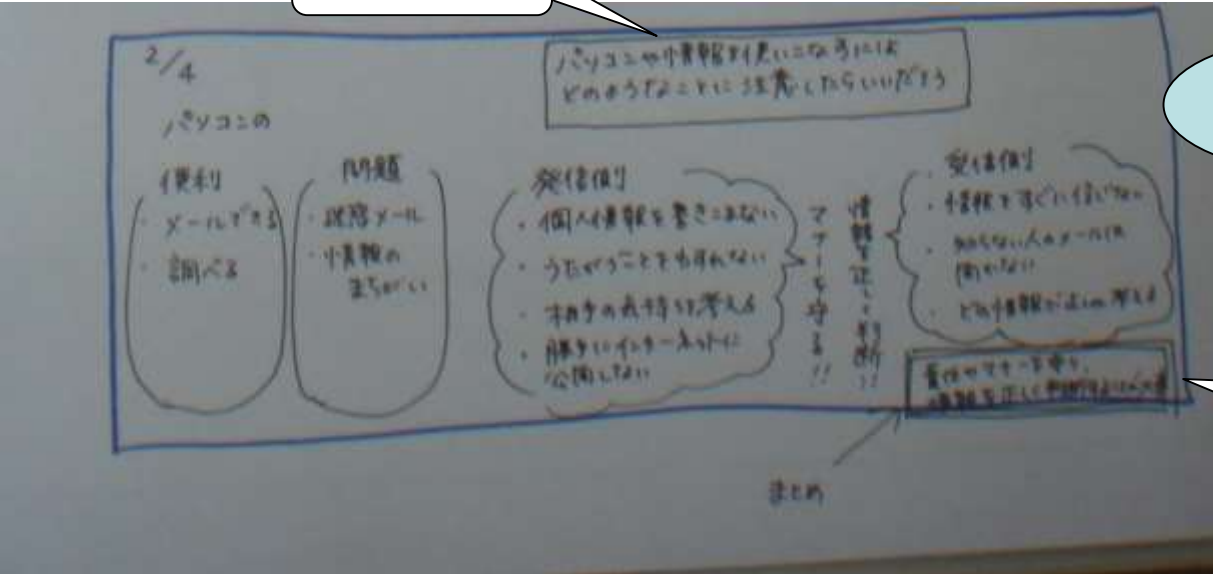 2/4
パソコンや情報を使いこなすには
どのようなことに注意したらいいだろう
パソコンの
便利
・メールできる
・調べる
問題
・迷惑メール
・情報の
まちがい
発信側
・個人情報を書きこまない
・うたがうことをわすれない
・相手の気持ちを考える
・勝手にインターネットに
公開しない
マナーを守る!!
情報を正しく判断!!
受信側
・情報をすぐに信じない
・知らない人のメールは
開かない
・どの情報が正しいか考える
責任やマナーを守り、
情報を正しく判断することが大事
まとめ